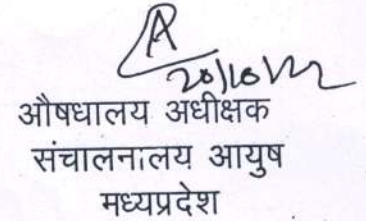 20/10/22
औषधालय अधीक्षक
संचालनालय आयुष
मध्यप्रदेश